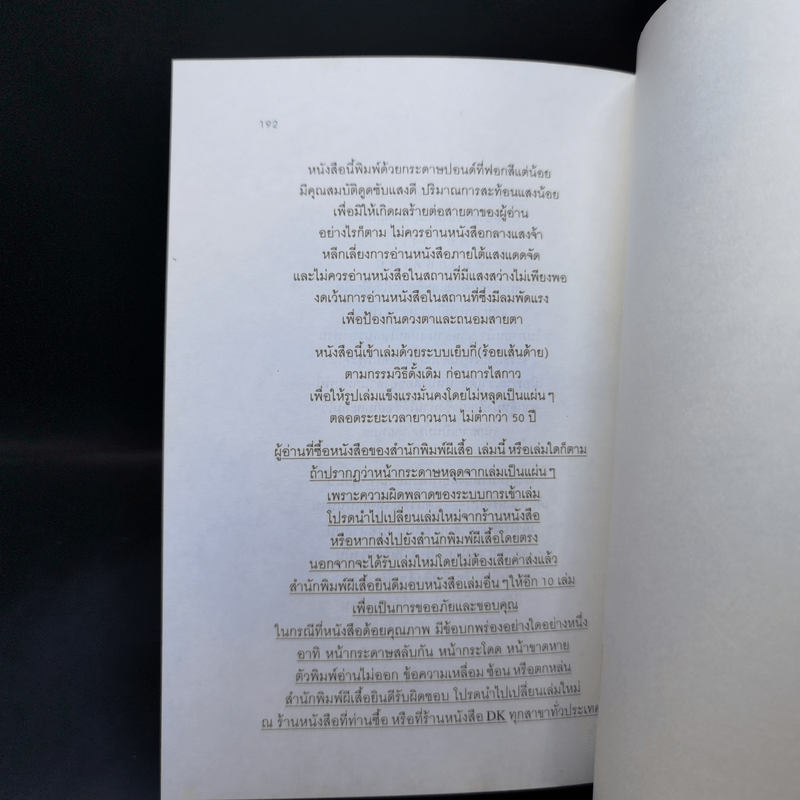 192
หนังสือนี้พิมพ์ด้วยกระดาษปอนด์ที่ฟอกสีแต่น้อย
มีคุณสมบัติดูดซับแสงดี ปริมาณการสะท้อนแสงน้อย
เพื่อมิให้เกิดผลร้ายต่อสายตาของผู้อ่าน
อย่างไรก็ตาม ไม่ควรอ่านหนังสือกลางแสงจ้า
หลีกเลี่ยงการอ่านหนังสือภายใต้แสงแดดจัด
และไม่ควรอ่านหนังสือในสถานที่มีแสงสว่างไม่เพียงพอ
งดเว้นการอ่านหนังสือในสถานที่ซึ่งมีลมพัดแรง
เพื่อป้องกันดวงตาและถนอมสายตา
หนังสือนี้เข้าเล่มด้วยระบบเย็บกี่(ร้อยเส้นด้าย)
ตามกรรมวิธีดั้งเดิม ก่อนการไสกาว
เพื่อให้รูปเล่มแข็งแรงมั่นคงโดยไม่หลุดเป็นแผ่นๆ
ตลอดระยะเวลายาวนาน ไม่ต่ำกว่า 50 ปี
ผู้อ่านที่ซื้อหนังสือของสำนักพิมพ์ผีเสื้อ เล่มนี้ หรือเล่มใดก็ตาม
ถ้าปรากฏว่าหน้ากระดาษหลุดจากเล่มเป็นแผ่นๆ
เพราะความผิดพลาดของระบบการเข้าเล่ม
โปรดนำไปเปลี่ยนเล่มใหม่จากร้านหนังสือ
หรือหากส่งไปยังสำนักพิมพ์ผีเสื้อโดยตรง
นอกจากจะได้รับเล่มใหม่โดยไม่ต้องเสียค่าส่งแล้ว
สำนักพิมพ์ผีเสื้อยินดีมอบหนังสือเล่มอื่นๆ ให้อีก 10 เล่ม
เพื่อเป็นการขออภัยและขอบคุณ
ในกรณีที่หนังสือด้อยคุณภาพ มีข้อบกพร่องอย่างใดอย่างหนึ่ง
อาทิ หน้ากระดาษสลับกัน หน้ากระโดด หน้าขาดหาย
ตัวพิมพ์อ่านไม่ออก ข้อความเหลื่อม ซ้อน หรือตกหล่น
สำนักพิมพ์ผีเสื้อยินดีรับผิดชอบ โปรดนำไปเปลี่ยนเล่มใหม่
ณ ร้านหนังสือที่ท่านซื้อ หรือที่ร้านหนังสือ DK ทุกสาขาทั่วประเทศ